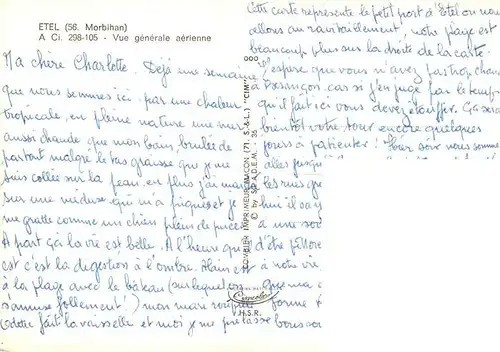 ETEL (56. Morbihan)
A Ci. 298-105 - Vue générale aérienne
Ma chère Charlotte. Déjà une semaine
que nous sommes ici, par une chaleur
tropicale, en pleine nature une mer
aussi chaude que mon bain, brulée de
partout malgré le gras que je me
suis collée sur la peau, en plus j'ai marché
sur une méduse qui m'a piquée et je
me gratte comme un chien plein de puces
A part ça la vie est belle. A l'heure qu'il
est c'est la digestion à l'ombre. Alain est
à la plage avec le bateau (sur lequel
s'amuse follement!) mon mari roupille
Odette fait la vaisselle et moi je me prélasse
Cette carte représente le petit port d'Etel ou nous
allons au ravitaillement, notre plage est
beaucoup plus sur la droite de la carte.
J'espère que vous n'avez pas trop chaud
à Besançon, car si j'en juge par le temps
qu'il fait ici vous devez étouffer. Ça sera
bientôt votre tour encore quelques
jours à patienter! Hier soir nous sommes
allés jusqu
les rues qu
hui il
à une so
d'être
à notre vie
que ma
forme
bons
COMBIER IMPRIMEUR MACON (71. S.-&-L.) "CIM"
© by S.P.A.D.E.M. 36
H.S.R.